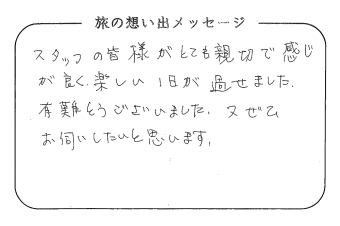 旅の想い出メッセージ
スタッフの皆様がとても親切で感じ
が良く、楽しい1日が過せました。
有難うございました。又ぜひ
お伺いしたいと思います。